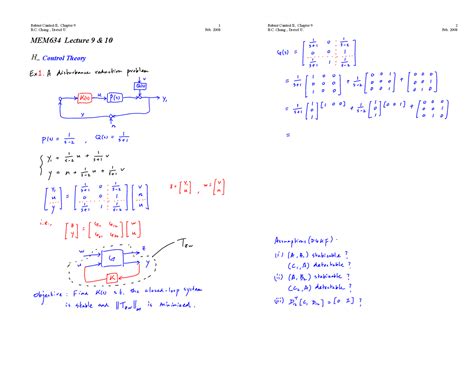 Robust Control II, Chapter 9
B.C. Chang, Drexel U.
Feb. 2008
MEM634 Lecture 9 & 10
H∞ Control Theory
Ex1. A disturbance reduction problem
v
Q(s)
K(s)
u
P(s)
y₁
y
n
P(s) = 1/(s-2) , Q(s) = 1/(s+1)
{ y₁ = 1/(s-2) u + 1/(s+1) v
y = n + 1/(s-2) u + 1/(s+1) v
[y₁; u; y] = [1/(s+1) 0 1/(s-2); 0 0 1; 1/(s+1) 1 1/(s-2)] [v; n; u]
z = [y₁; u] , w = [v; n]
i.e., [z; y] = [G₁₁ G₁₂; G₂₁ G₂₂] [w; u]
w
G
z
u
y
K
Objective: Find K(s) s.t. the closed-loop system
is stable and ‖Tzw‖∞ is minimized.
Robust Control II, Chapter 9
2
B.C. Chang, Drexel U.
Feb. 2008
G(s) = [1/(s+1) 0 1/(s-2); 0 0 1; 1/(s+1) 1 1/(s-2)]
=
Assumptions (DGKF)
(i) (A, B₁) stabilizable ?
(C₁, A) detectable ?
(ii) (A, B₂) stabilizable ?
(C₂, A) detectable ?
(iii) D₁₂ᵀ [C₁ D₁₂] = [0 I] ?